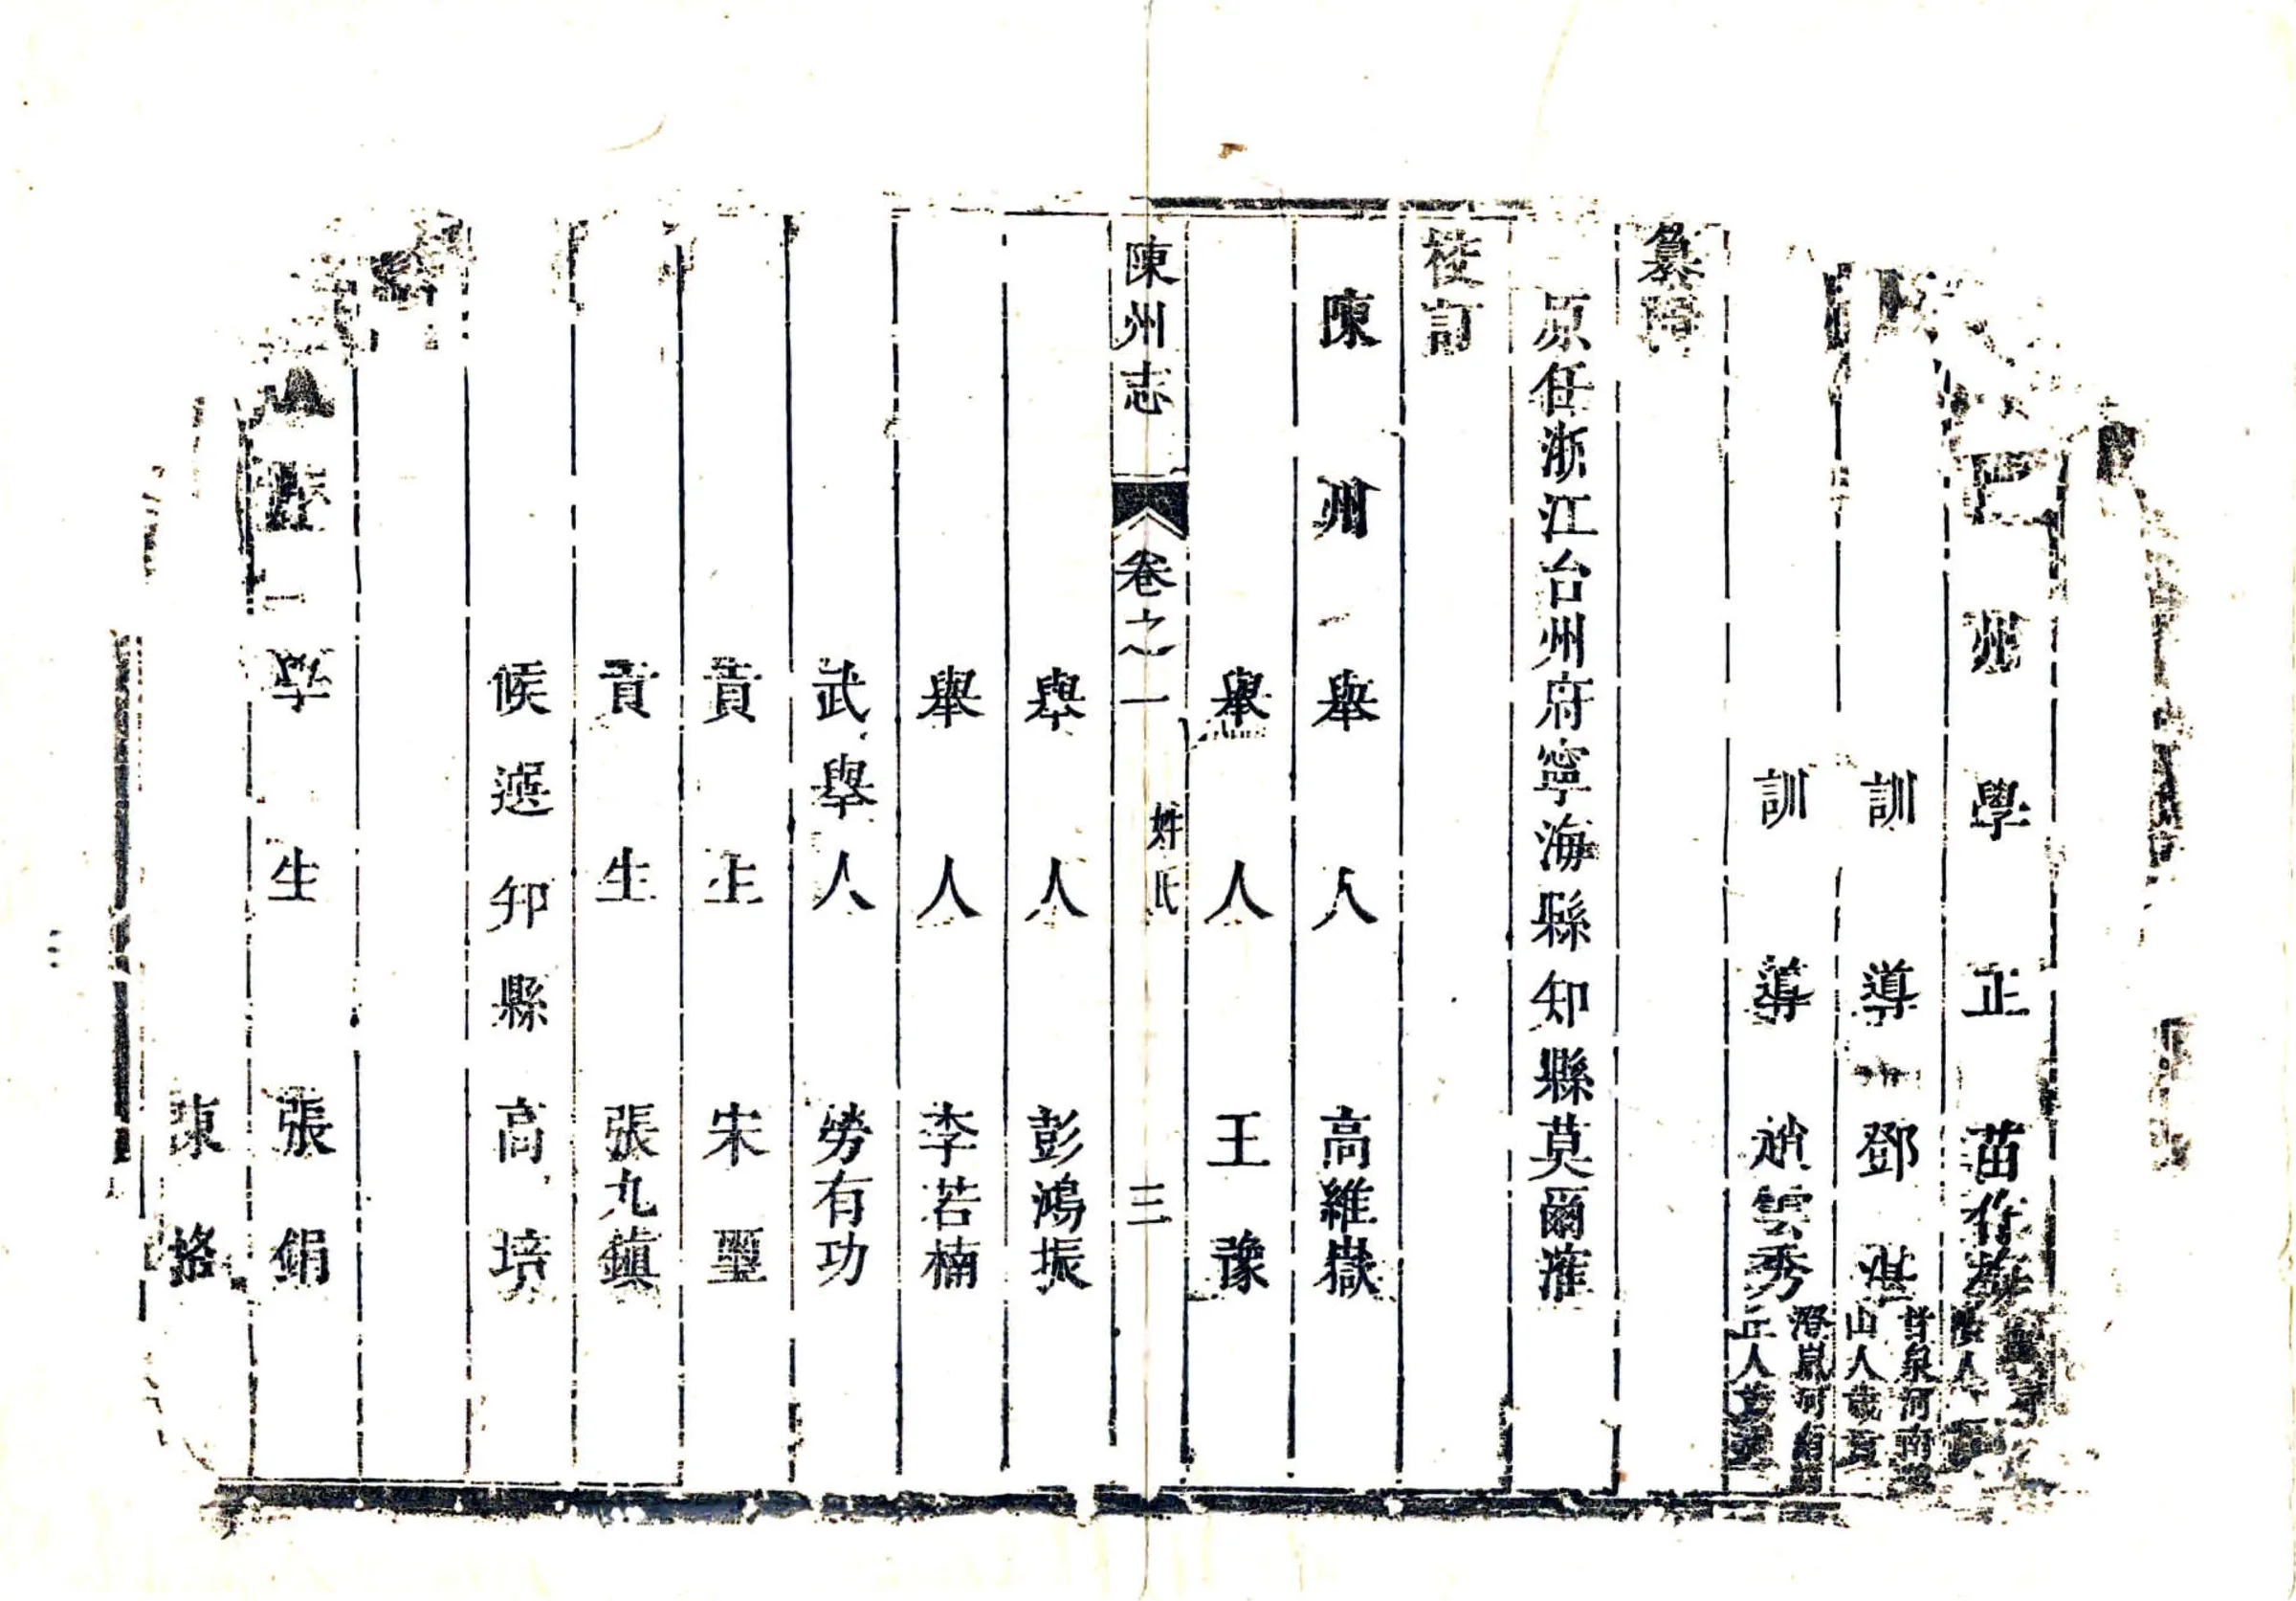 州學正苗作
人
訓導鄧淇
哲泉河南
山人歲貢
訓導趙雲秀
澄嵐河南
丘人歲貢
纂
原任浙江台州府寧海縣知縣莫爾漼
校訂
陳州舉人高維嶽
舉人王豫
陳州志 卷之一 姓氏 三
舉人彭鴻振
舉人李若楠
武舉人勞有功
貢生宋璽
貢生張九鎮
候選知縣高培
學生張絹